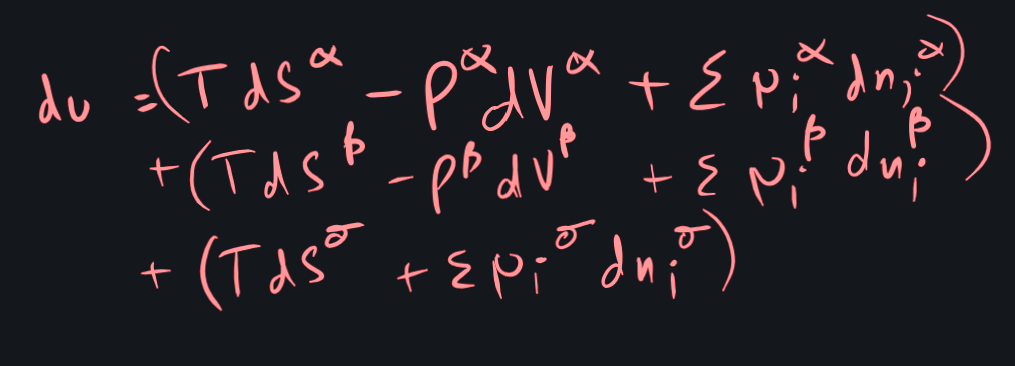 du = (T dS^α − P^α dV^α + Σ μ_i^α dn_i^α)
+ (T dS^β − P^β dV^β + Σ μ_i^β dn_i^β)
+ (T dS^σ + Σ μ_i^σ dn_i^σ)